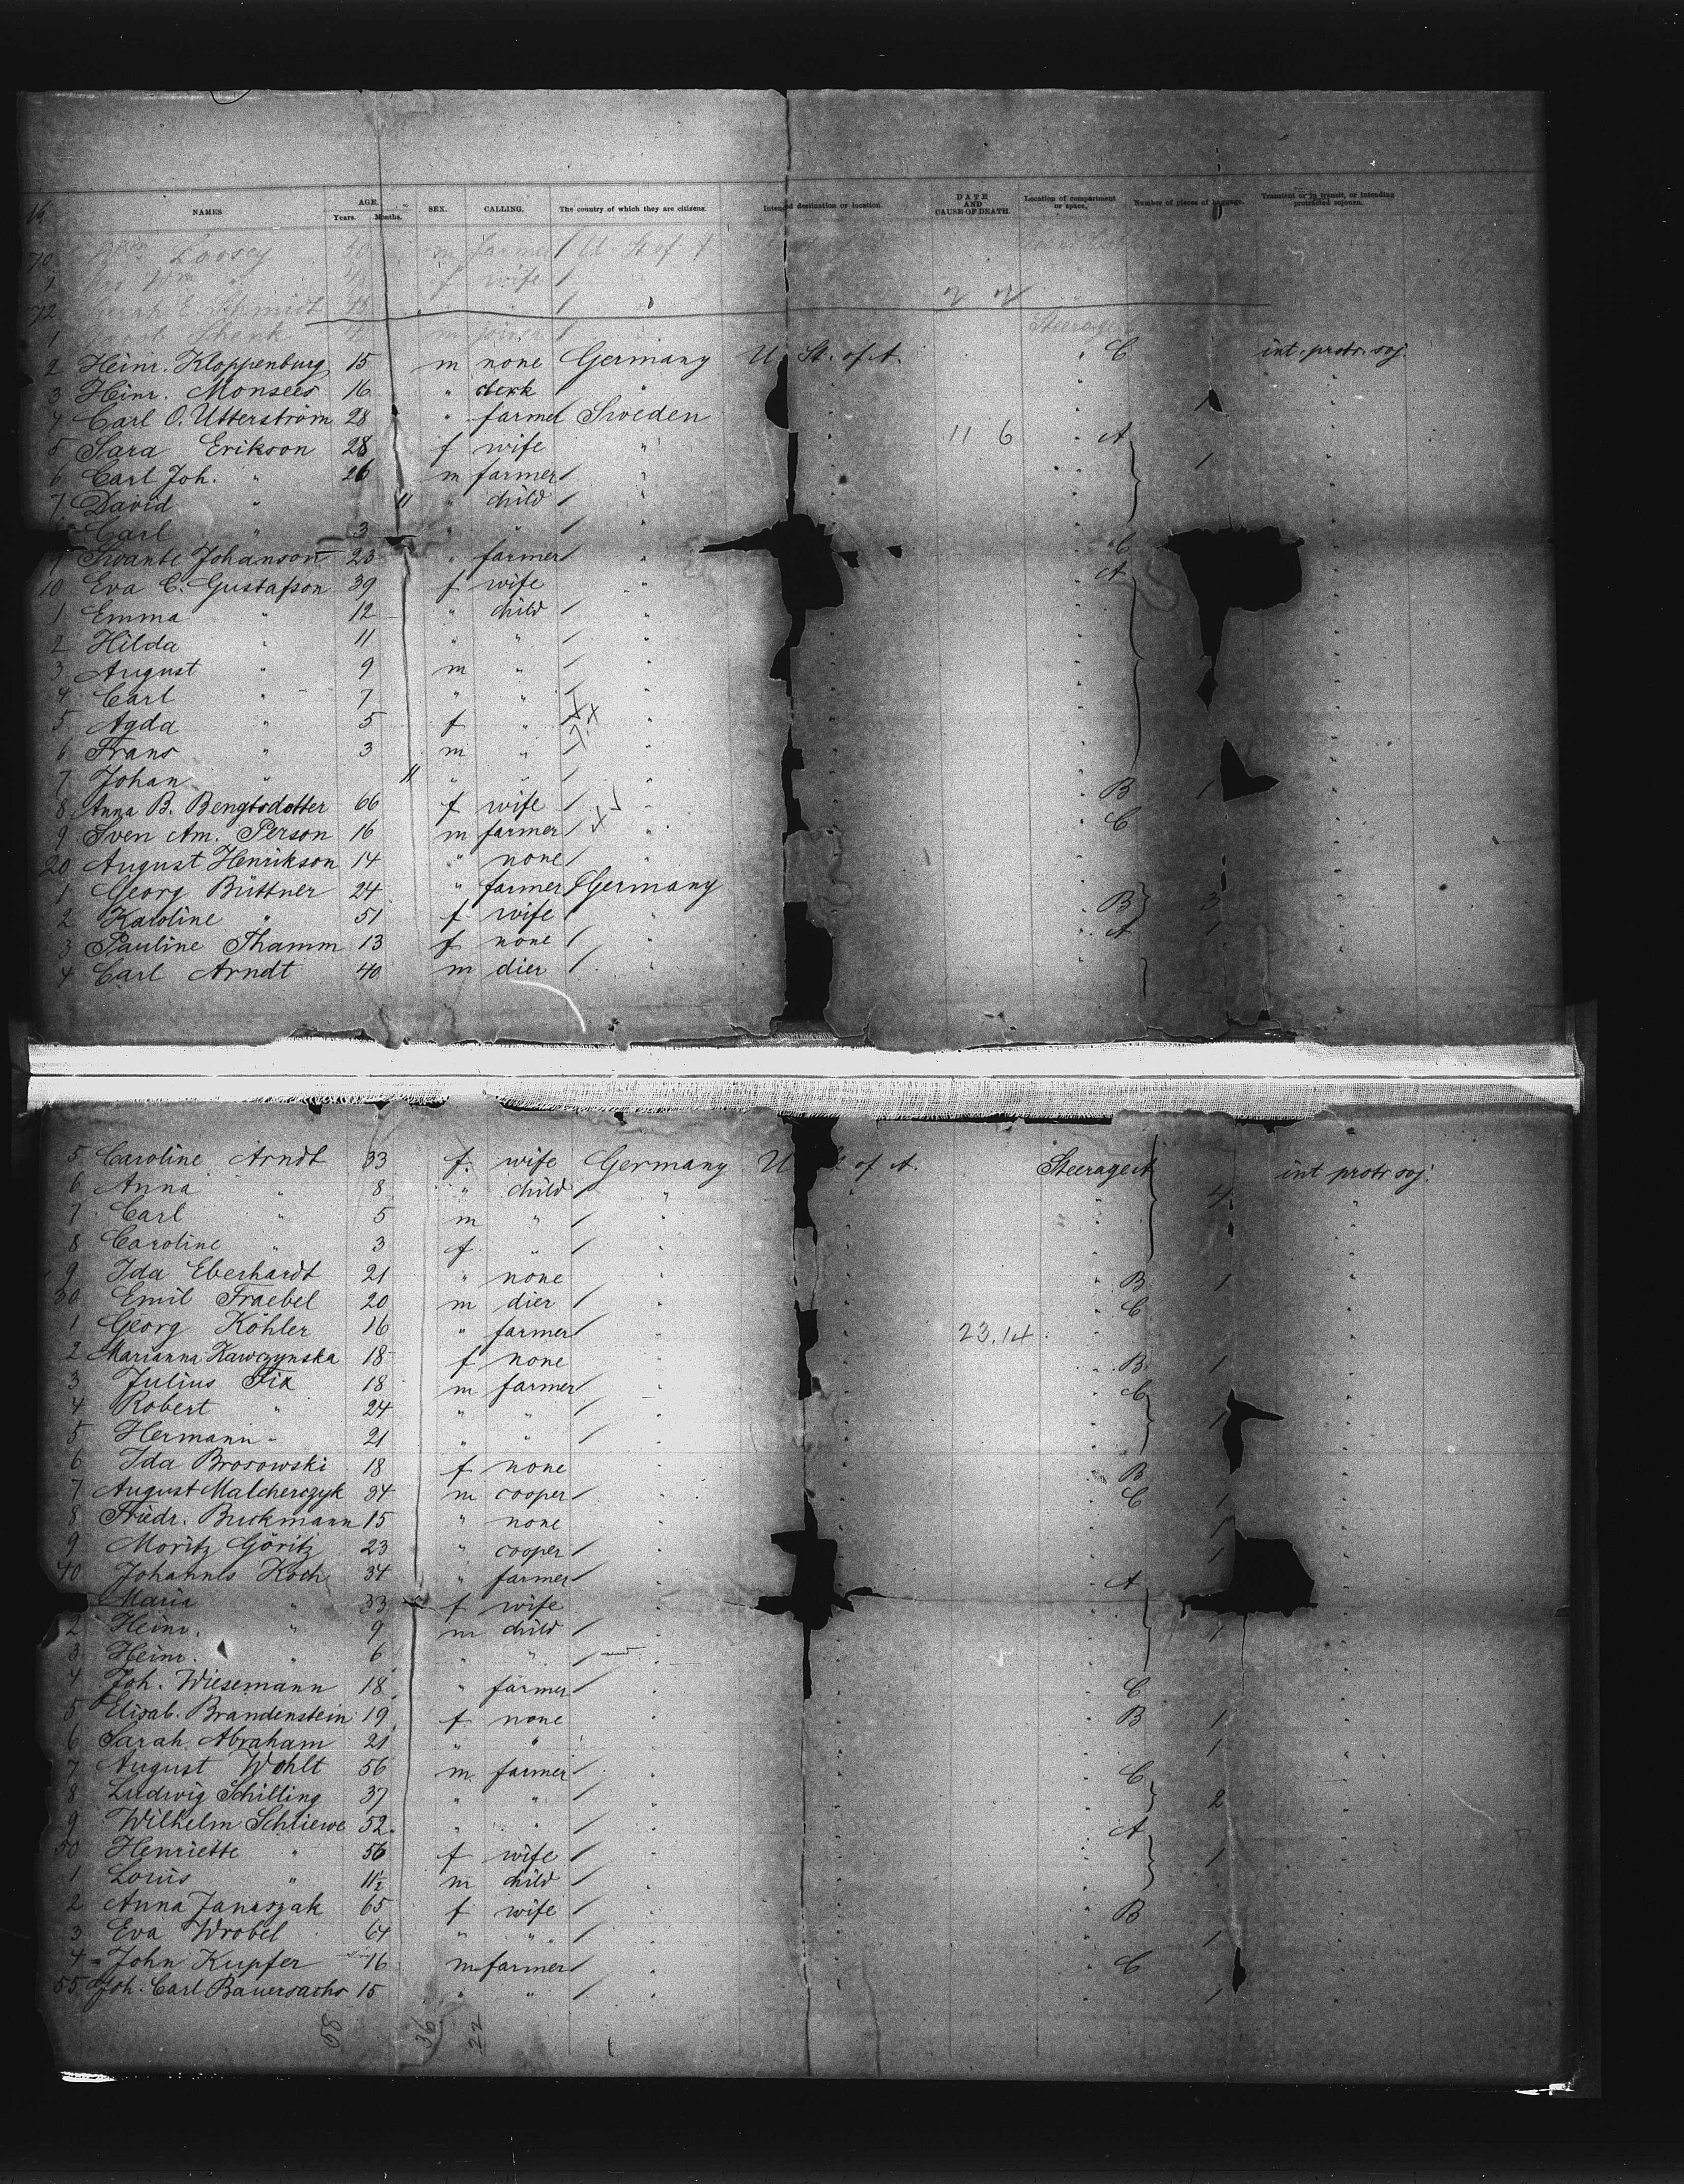 NAMES AGE. Years. Months. SEX. CALLING. The country of which they are citizens. Intended destination or location. DATE AND CAUSE OF DEATH. Location of compartment or space. Number of pieces of baggage. Transient or in transit, or intending protracted sojourn.
70 Loosey 50 m farmer / U St of A
1 Mrs Wm " f wife /
72 Sarah E. Schmidt 48 " " /
1 Schenk m joiner / Steerage
2 Heinr. Kloppenburg 15 m none Germany U. St. of A. C int. protr. soj.
3 Heinr. Monsees 16 " clerk "
4 Carl O. Utterström 28 " farmer / Sweden 1
5 Sara Erikson 28 f wife " 11 6 A
6 Carl Joh. " 26 m farmer / " 1
7 David " 11 " child / "
8 Carl " 3 " " / "
9 Swante Johanson 23 " farmer / " C
10 Eva C. Gustafson 39 f wife " A
1 Emma " 12 " child / "
2 Hilda " 11 " " / "
3 August " 9 m " / "
4 Carl " 7 " " / "
5 Agda " 5 f " / "
6 Frans " 3 m " / "
7 Johan " 11 " " / "
8 Anna B. Bengtsdotter 66 f wife / " B 1
9 Sven Am. Person 16 m farmer / " C
20 August Henrikson 14 " none / "
1 Georg Büttner 24 " farmer / Germany
2 Karoline " 51 f wife / " B 3
3 Pauline Thamm 13 f none / " A 1
4 Carl Arndt 40 m dier / "
5 Caroline Arndt 33 f. wife Germany U St. of A. Steerage A int protr soj.
6 Anna " 8 " child / " 4
7 Carl " 5 m " / "
8 Caroline " 3 f " / "
9 Ida Eberhardt 21 " none " B 1
30 Emil Fraebel 20 m dier / " C
1 Georg Köhler 16 " farmer / " 23.14
2 Marianna Kawczynska 18 f none " B 1
3 Julius Fix 18 m farmer / " C
4 Robert " 24 " " / " 1
5 Hermann " 21 " " / "
6 Ida Brosowski 18 f none " B
7 August Malcherczyk 34 m cooper / " C 1
8 Friedr. Buckmann 15 " none " 1
9 Moritz Göritz 23 " cooper / " 1
40 Johannes Koch 34 " farmer / " A
Maria " 33 f wife "
2 Heinr. " 9 m child / " 1
3 Heinr. " 6 " " / "
4 Joh. Wiesemann 18 " farmer / " C
5 Elisab. Brandenstein 19 f none " B 1
6 Sarah Abraham 21 " " " 1
7 August Wohlt 56 m farmer / " C
8 Ludwig Schilling 37 " " / " 2
9 Wilhelm Schliewe 52 " " / " A
50 Henriette " 56 f wife / " 1
1 Louis " 11½ m child / "
2 Anna Janaszak 65 f wife / " B
3 Eva Wrobel 64 " " / " 1
4 John Kupfer 16 m farmer / " C
55 Joh. Carl Bauersachs 15 " " / " 1
58 36 22